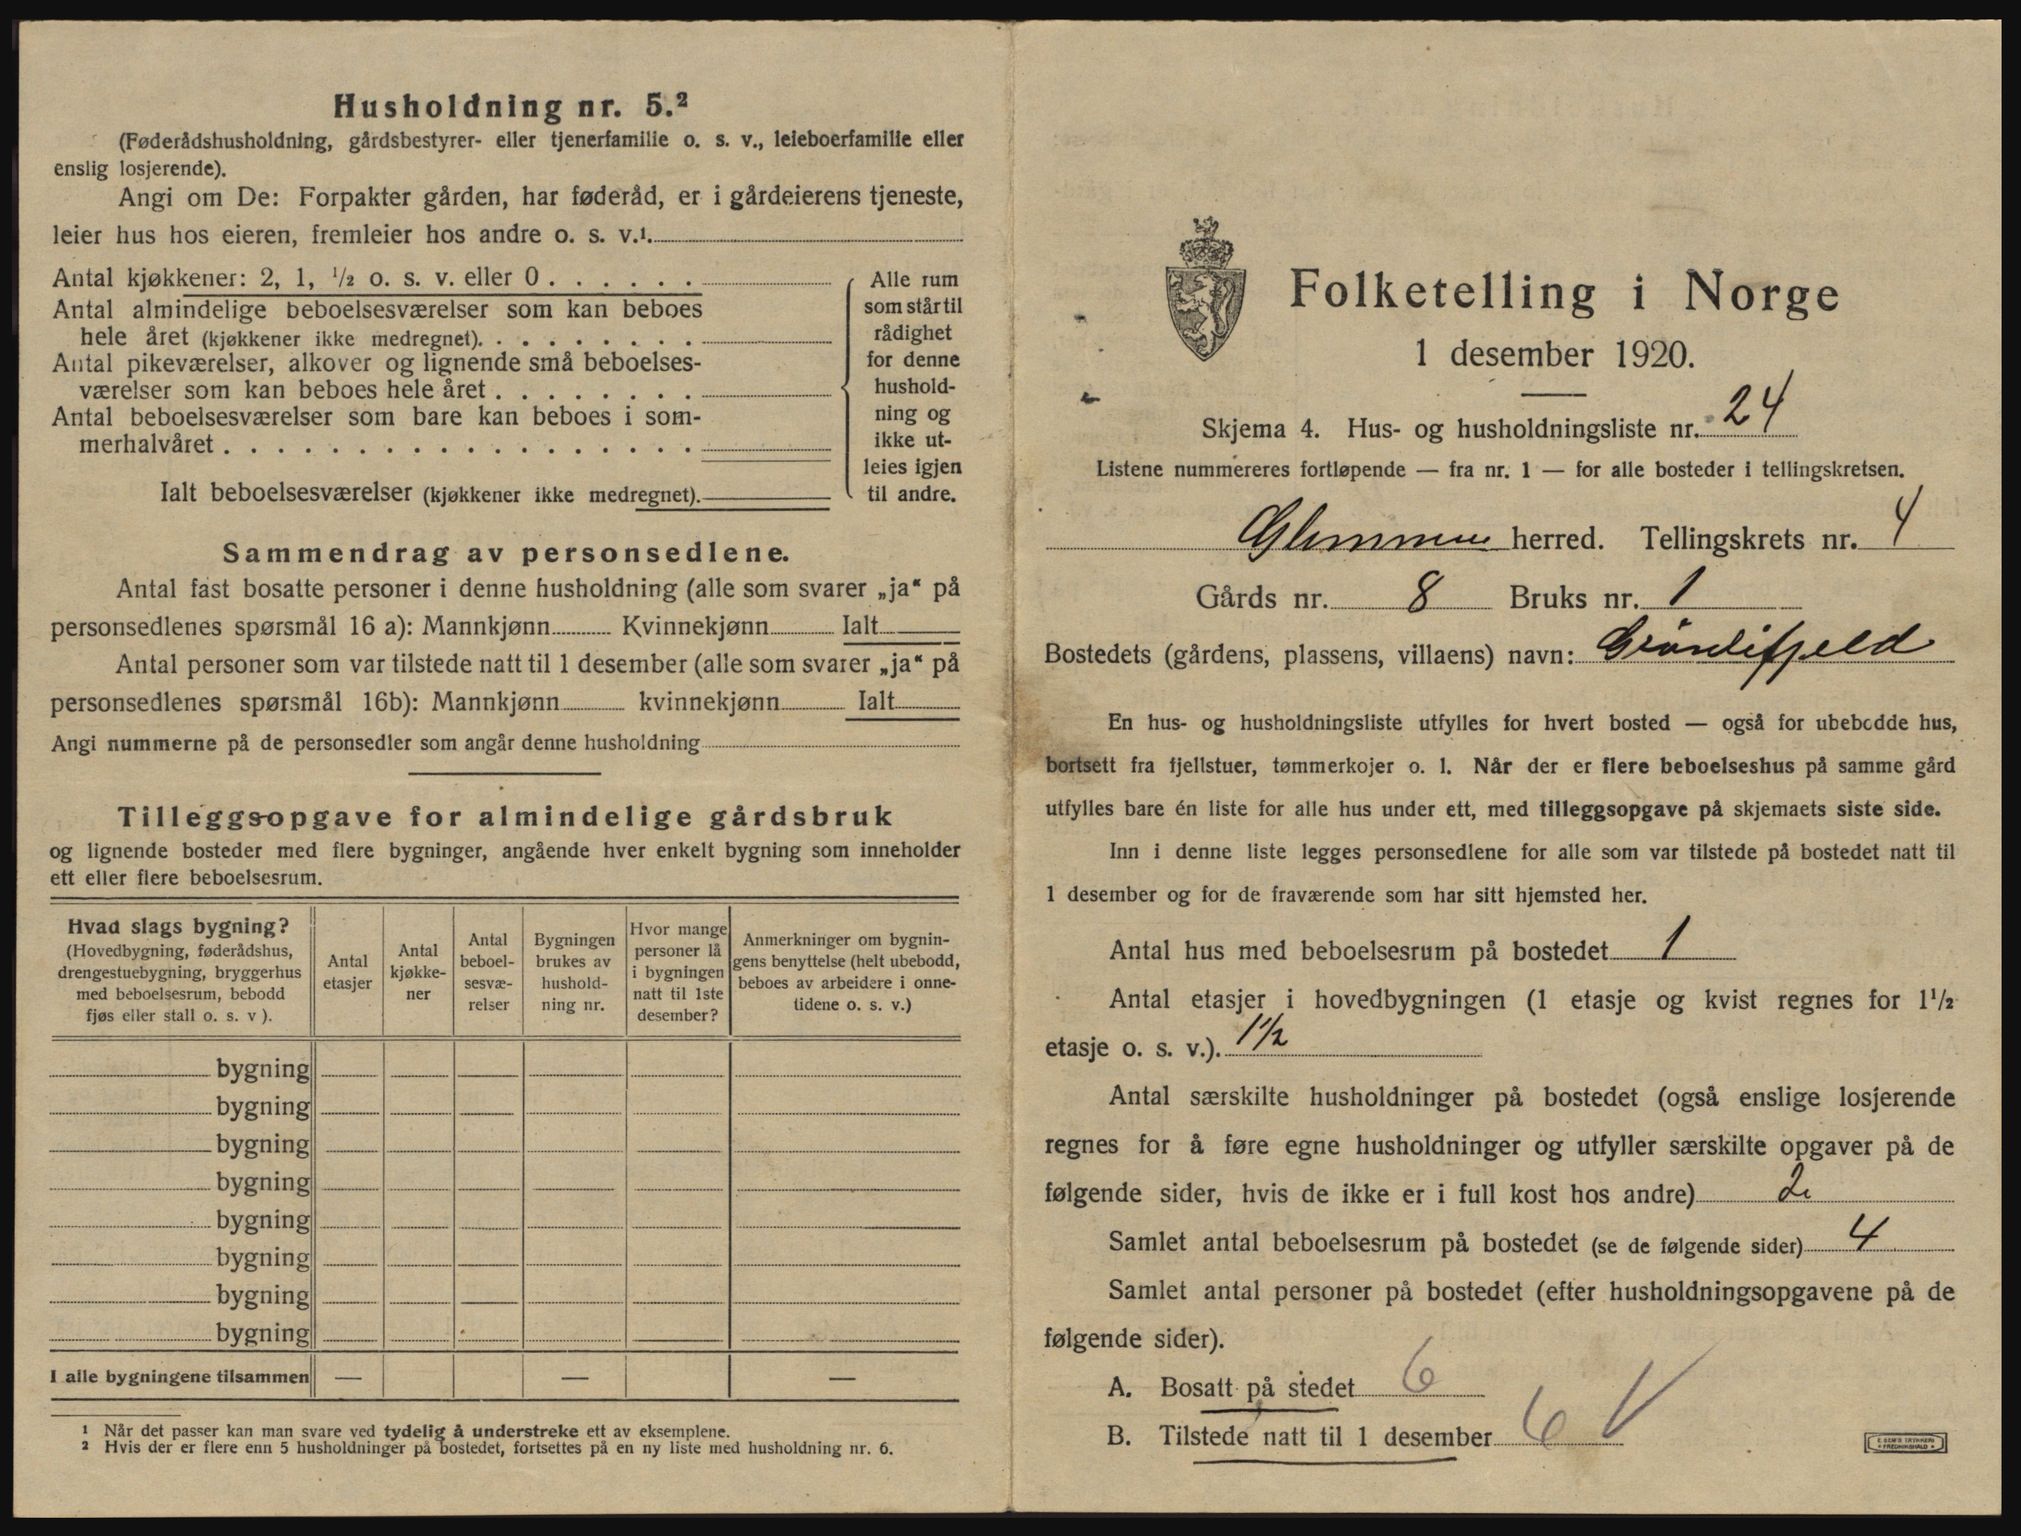 Husholdning nr. 5.²
(Føderådshusholdning, gårdsbestyrer- eller tjenerfamilie o. s. v., leieboerfamilie eller
enslig losjerende).
Angi om De: Forpakter gården, har føderåd, er i gårdeierens tjeneste,
leier hus hos eieren, fremleier hos andre o. s. v.¹.
Antal kjøkkener: 2, 1, ½ o. s. v. eller 0 . . . . . .
Antal almindelige beboelsesværelser som kan beboes
hele året (kjøkkener ikke medregnet). . . . . . . . .
Antal pikeværelser, alkover og lignende små beboelses-
værelser som kan beboes hele året . . . . . . . .
Antal beboelsesværelser som bare kan beboes i som-
merhalvåret . . . . . . . . . . . . . . . . . .
Ialt beboelsesværelser (kjøkkener ikke medregnet).
Alle rum
som står til
rådighet
for denne
hushold-
ning og
ikke ut-
leies igjen
til andre.
Sammendrag av personsedlene.
Antal fast bosatte personer i denne husholdning (alle som svarer „ja“ på
personsedlenes spørsmål 16 a): Mannkjønn Kvinnekjønn Ialt
Antal personer som var tilstede natt til 1 desember (alle som svarer „ja“ på
personsedlenes spørsmål 16b): Mannkjønn kvinnekjønn Ialt
Angi nummerne på de personsedler som angår denne husholdning
Tilleggsopgave for almindelige gårdsbruk
og lignende bosteder med flere bygninger, angående hver enkelt bygning som inneholder
ett eller flere beboelsesrum.
Hvad slags bygning?
(Hovedbygning, føderådshus,
drengestuebygning, bryggerhus
med beboelsesrum, bebodd
fjøs eller stall o. s. v ).
Antal
etasjer
Antal
kjøkke-
ner
Antal
beboel-
sesvæ-
relser
Bygningen
brukes av
hushold-
ning nr.
Hvor mange
personer lå
i bygningen
natt til 1ste
desember?
Anmerkninger om bygnin-
gens benyttelse (helt ubebodd,
beboes av arbeidere i onne-
tidene o. s. v.)
bygning
bygning
bygning
bygning
bygning
bygning
bygning
bygning
I alle bygningene tilsammen — — —
¹ Når det passer kan man svare ved tydelig å understreke ett av eksemplene.
² Hvis der er flere enn 5 husholdninger på bostedet, fortsettes på en ny liste med husholdning nr. 6.
Folketelling i Norge
1 desember 1920.
Skjema 4. Hus- og husholdningsliste nr. 24
Listene nummereres fortløpende — fra nr. 1 — for alle bosteder i tellingskretsen.
Glemmen herred. Tellingskrets nr. 4
Gårds nr. 8 Bruks nr. 1
Bostedets (gårdens, plassens, villaens) navn: Grönlifjeld
En hus- og husholdningsliste utfylles for hvert bosted — også for ubebodde hus,
bortsett fra fjellstuer, tømmerkojer o. l. Når der er flere beboelseshus på samme gård
utfylles bare én liste for alle hus under ett, med tilleggsopgave på skjemaets siste side.
Inn i denne liste legges personsedlene for alle som var tilstede på bostedet natt til
1 desember og for de fraværende som har sitt hjemsted her.
Antal hus med beboelsesrum på bostedet 1
Antal etasjer i hovedbygningen (1 etasje og kvist regnes for 1½
etasje o. s. v.). 1½
Antal særskilte husholdninger på bostedet (også enslige losjerende
regnes for å føre egne husholdninger og utfyller særskilte opgaver på de
følgende sider, hvis de ikke er i full kost hos andre) 2
Samlet antal beboelsesrum på bostedet (se de følgende sider) 4
Samlet antal personer på bostedet (efter husholdningsopgavene på de
følgende sider).
A. Bosatt på stedet 6
B. Tilstede natt til 1 desember 6
E. SEM'S TRYKKERI
FREDRIKSHALD